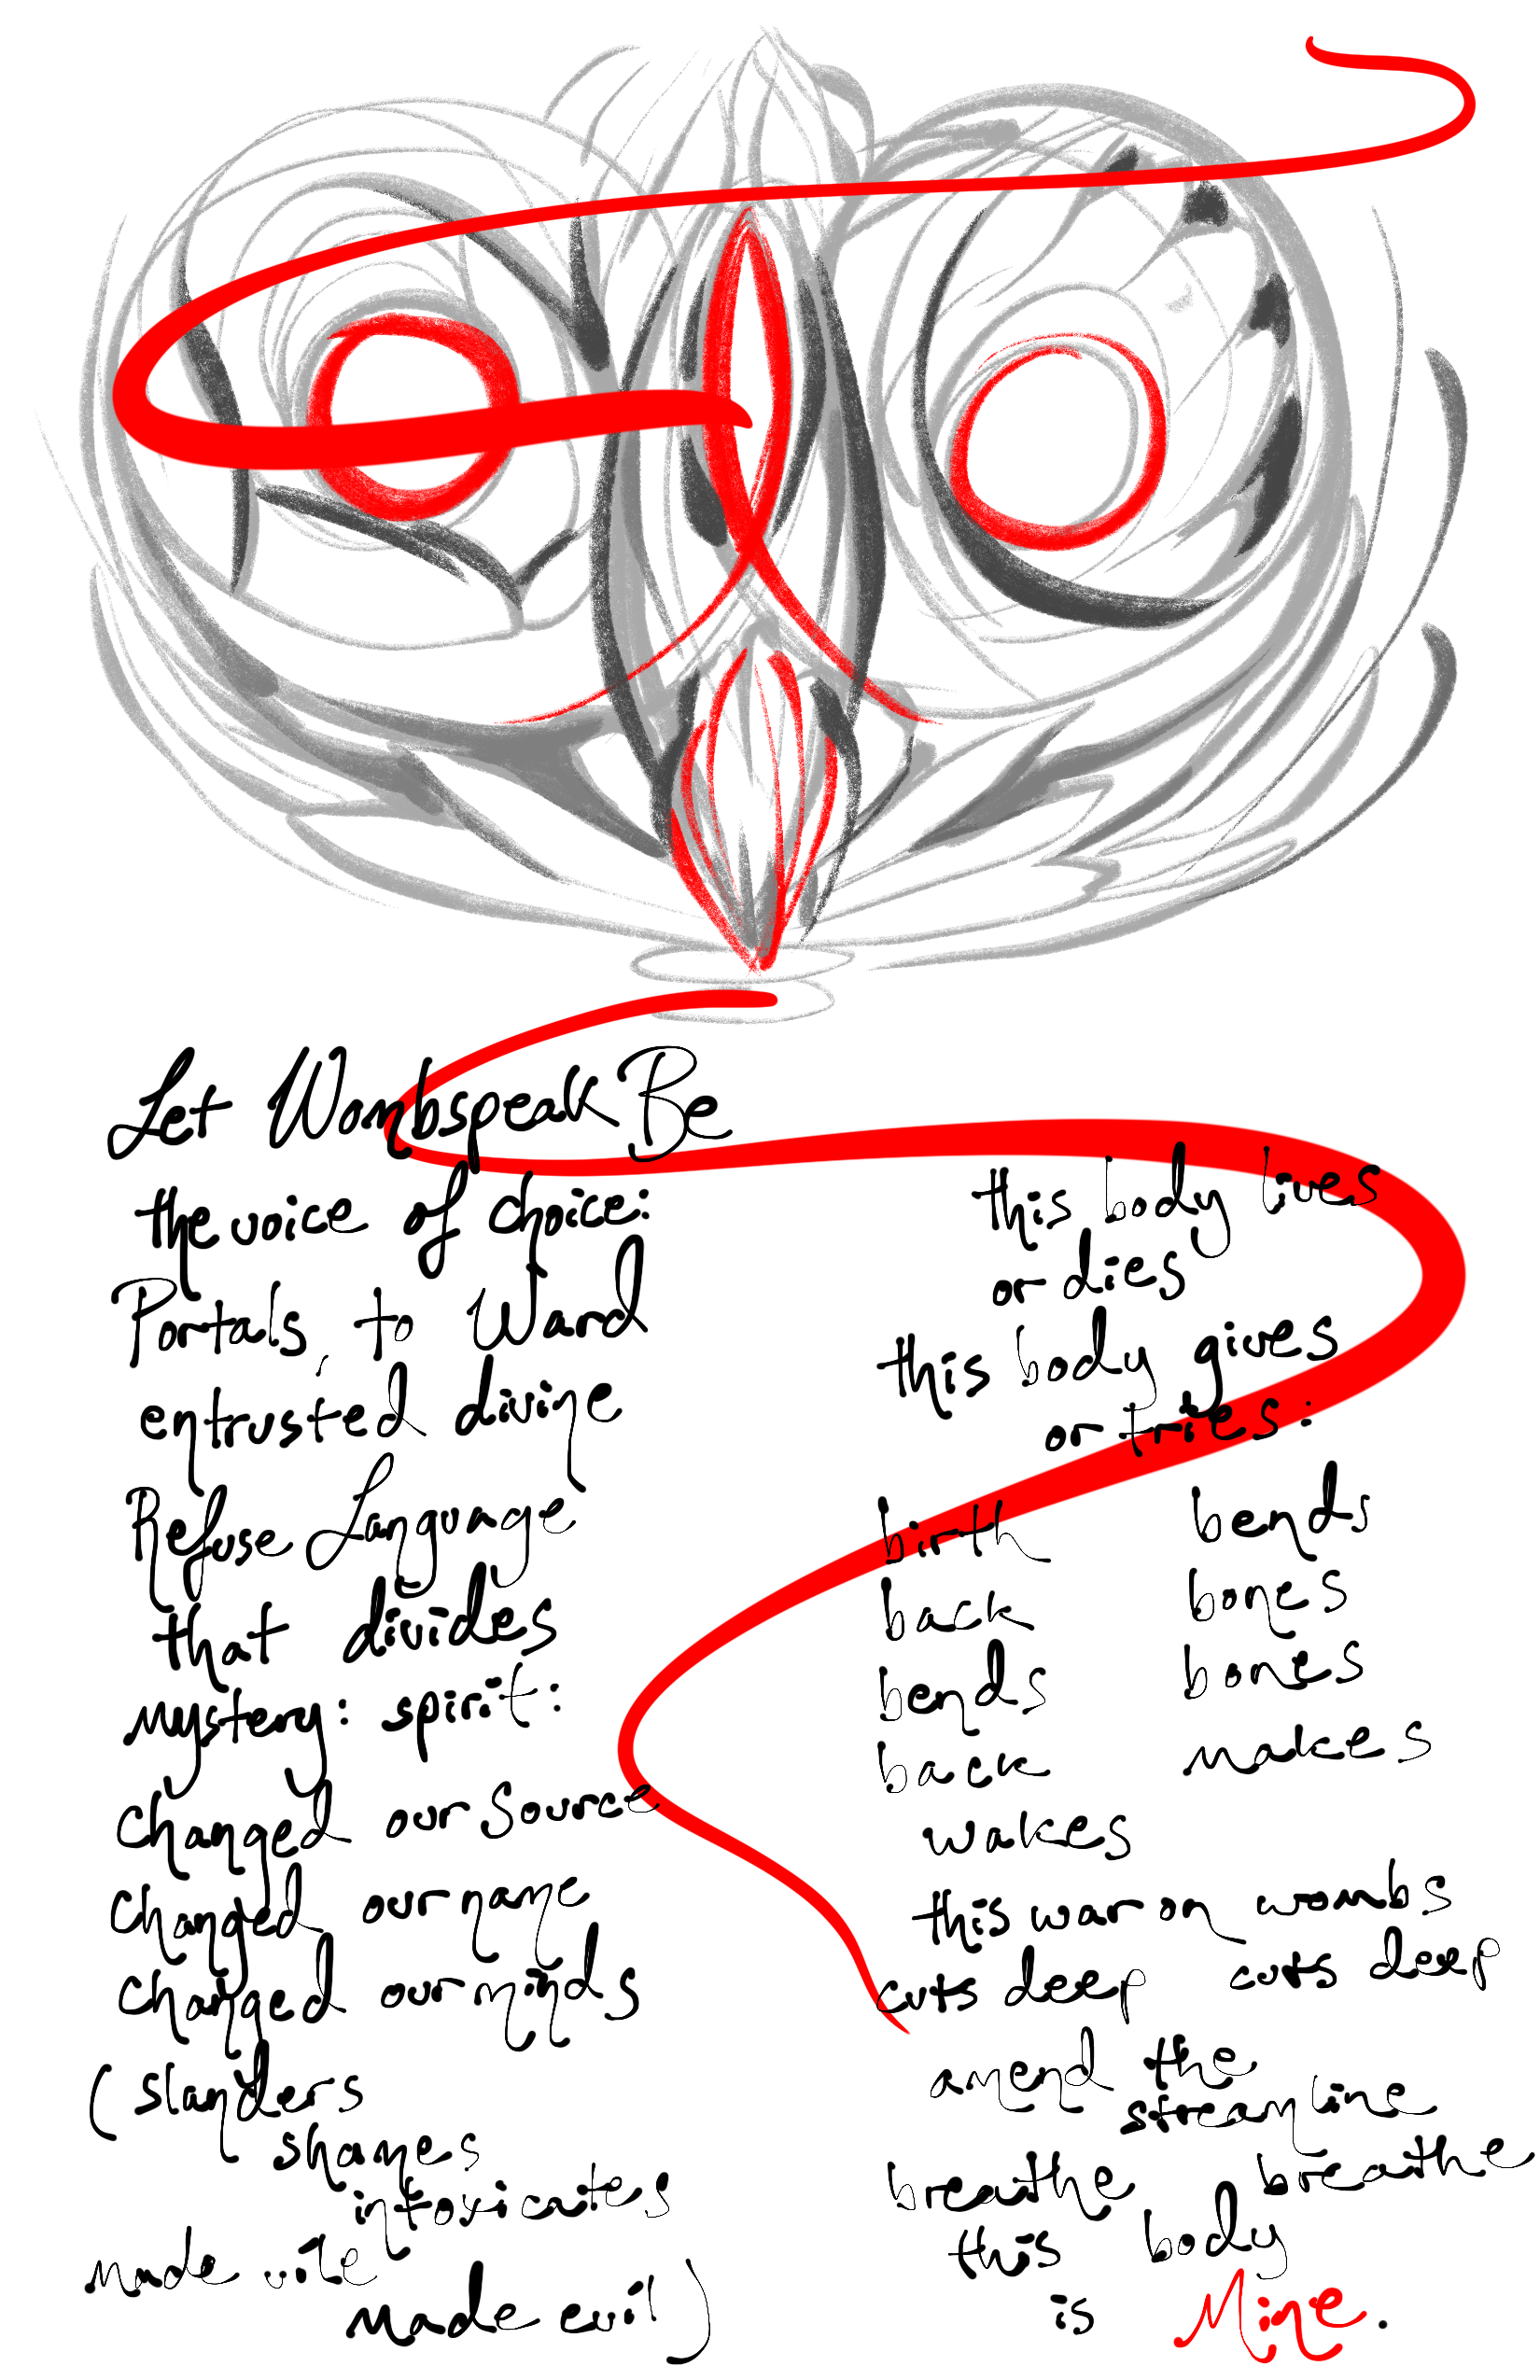 Let Wombspeak Be
the voice of choice:
Portals, to Ward
entrusted divine
Refuse Language
that divides
mystery: spirit:
changed our source
changed our name
changed our minds
(slanders
shames
intoxicates
made vile
made evil)
this body lives
or dies
this body gives
or tries:
birth bends
back bones
bends bones
back makes
wakes
this war on wombs
cuts deep cuts deep
amend the
streamline
breathe breathe
this body
is Mine.